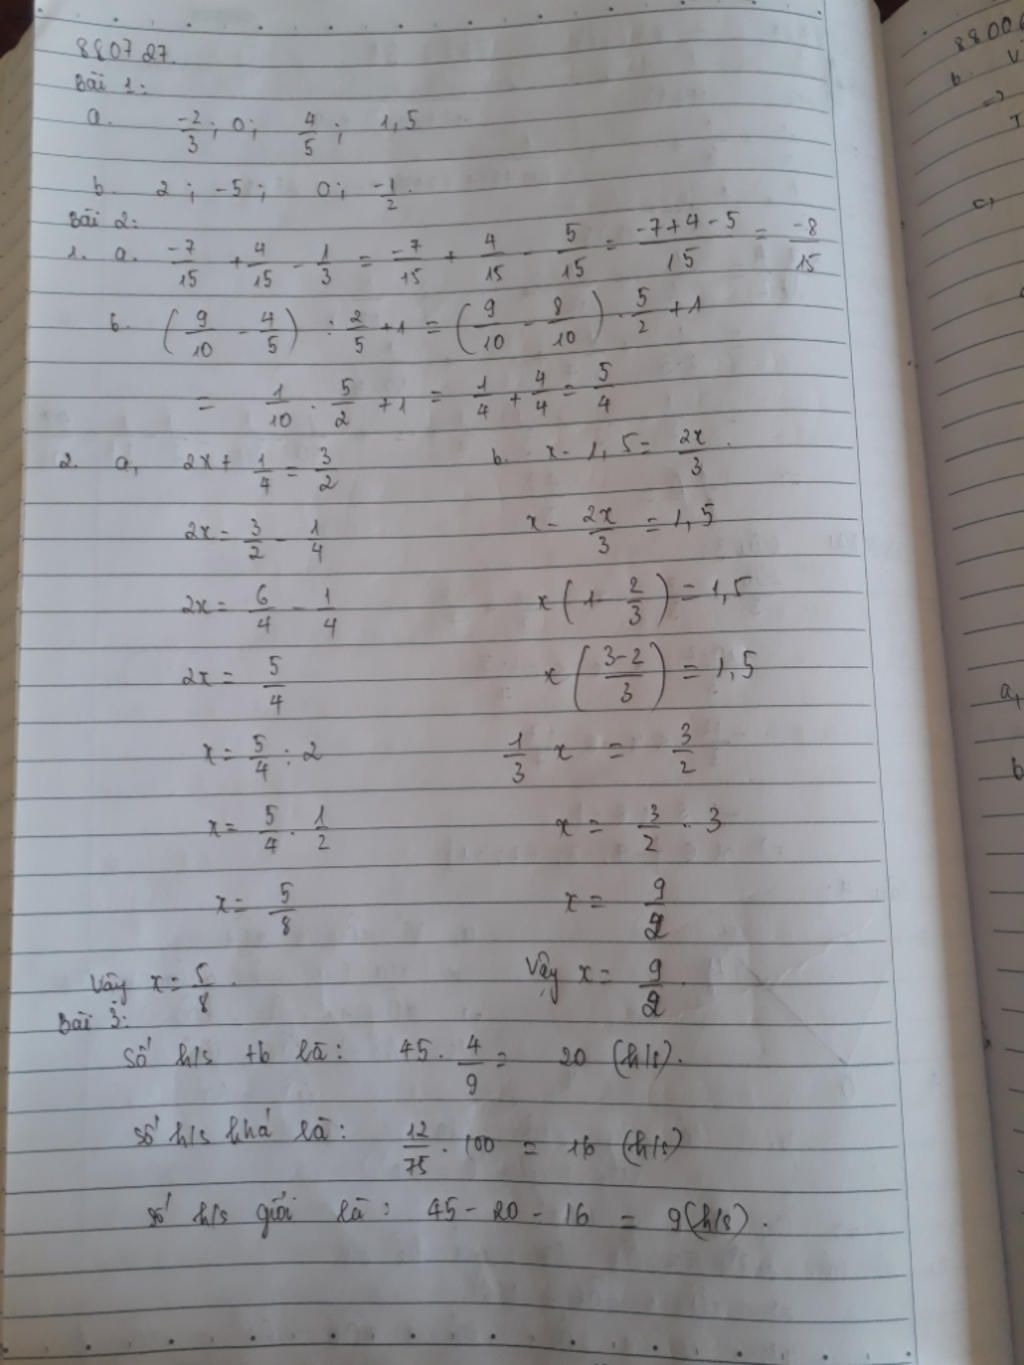 880727.
Bài 1:
a. -2/3; 0; 4/5; 1,5
b. 2; -5; 0; -1/2.
Bài 2:
1. a. -7/15 + 4/15 - 1/3 = -7/15 + 4/15 - 5/15 = (-7+4-5)/15 = -8/15
b. (9/10 - 4/5) : 2/5 + 1 = (9/10 - 8/10) . 5/2 + 1
= 1/10 . 5/2 + 1 = 1/4 + 4/4 = 5/4
2. a, 2x + 1/4 = 3/2
2x = 3/2 - 1/4
2x = 6/4 - 1/4
2x = 5/4
x = 5/4 : 2
x = 5/4 . 1/2
x = 5/8
Vậy x = 5/8.
b. x - 1,5 = 2x/3.
x - 2x/3 = 1,5
x(1 - 2/3) = 1,5
x((3-2)/3) = 1,5
1/3 x = 3/2
x = 3/2 . 3
x = 9/2
Vậy x = 9/2.
Bài 3:
Số h/s tb là: 45 . 4/9 = 20 (h/s).
Số h/s khá là: 12/75 . 100 = 16 (h/s)
Số h/s giỏi là: 45 - 20 - 16 = 9 (h/s).
8800
b.
=>
c,
a,
b